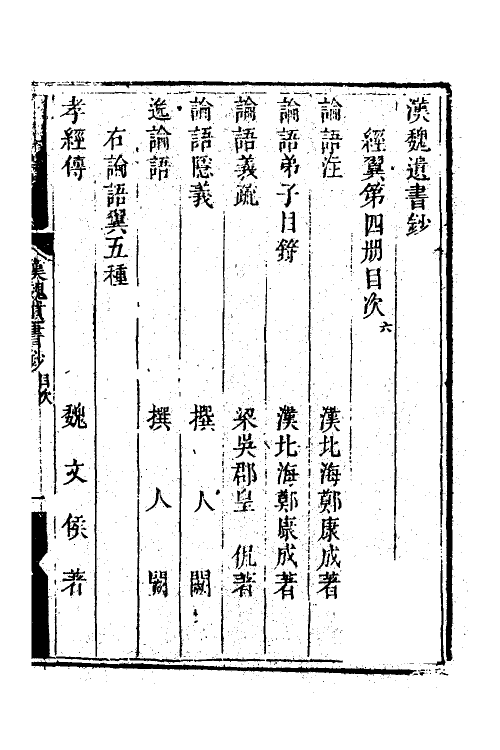 漢魏遺書鈔
經翼第四册目次六
論語注 漢北海鄭康成著
論語弟子目録 漢北海鄭康成著
論語義疏 梁吳郡皇侃著
論語隱義 撰人闕
逸論語 撰人闕
右論語翼五種
孝經傳 魏文侯著
漢魏遺書鈔 目次 一